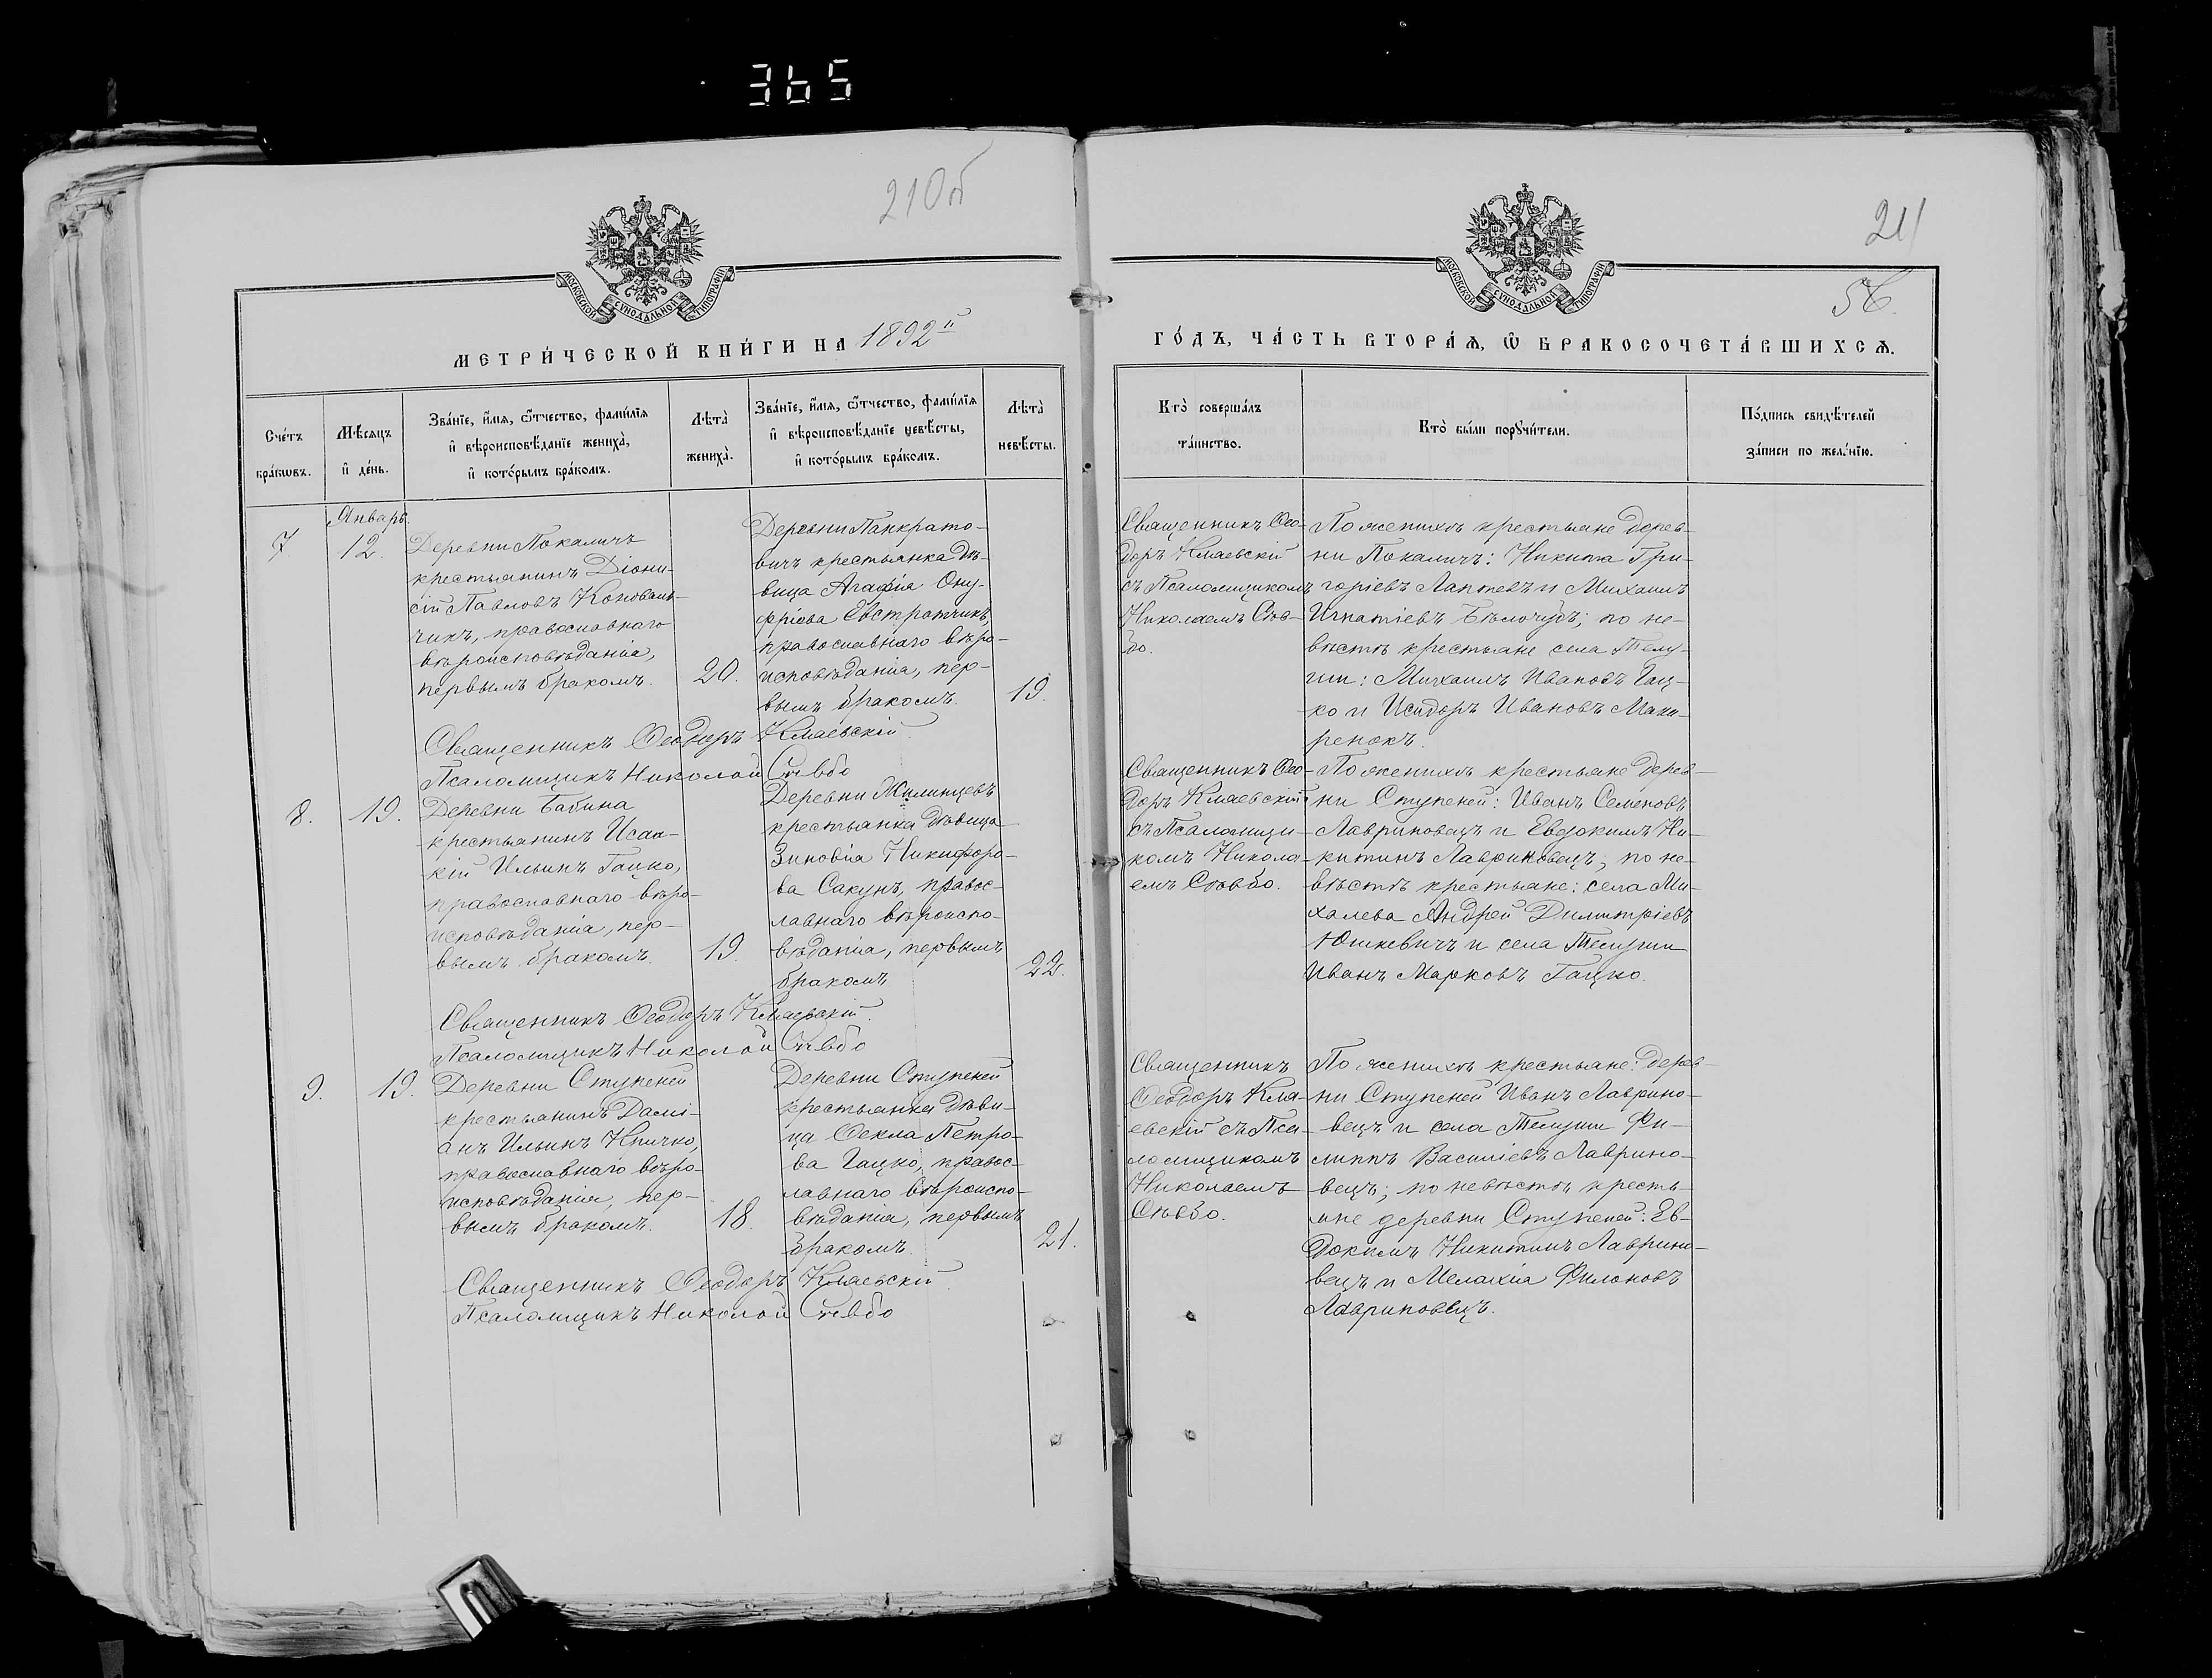 365
210 об
МОСКОВСКОЙ СѴНОДАЛЬНОЙ ТИПОГРАФІИ
МЕТРИ́ЧЕСКОЙ КНИ́ГИ НА 1892й
Сче́тъ
бра́кѡвъ.
Мѣ́сяцъ
и҆ де́нь.
Зва́нїе, и҆́мя, ѻ҆́тчество, фами́лїя
и҆ вѣроисповѣ́данїе жениха̀,
и҆ кото́рымъ бра́комъ.
Лѣ́та̀
жениха̀.
Зва́нїе, и҆́мя, ѻ҆́тчество, фами́лїя
и҆ вѣроисповѣ́данїе невѣ́сты,
и҆ кото́рымъ бра́комъ.
Лѣ́та̀
невѣ́сты.
Январь.
7
12.
Деревни Покаличъ
крестьянинъ Діони-
сій Павловъ Коноваль-
чикъ, православнаго
вѣроисповѣданія,
первымъ бракомъ.
20.
Деревни Панкрато-
вичъ крестьянка дѣ-
вица Агафія Ону-
фріева Евстратчикъ,
православнаго вѣро-
исповѣданія, пер-
вымъ бракомъ.
19.
Священникъ Ѳеодоръ Клаевскій.
Псаломщикъ Николай Сѣвбо
8.
19.
Деревни Бабина
крестьянинъ Исаа-
кій Ильинъ Гацко,
православнаго вѣро-
исповѣданія, пер-
вымъ бракомъ.
19.
Деревни Жилинцевъ
крестьянка дѣвица
Зиновія Никифоро-
ва Сакунъ, правос-
лавнаго вѣроиспо-
вѣданія, первымъ
бракомъ
22.
Священникъ Ѳеодоръ Клаевскій.
Псаломщикъ Николай Сѣвбо
9.
19.
Деревни Ступеней
крестьянинъ Дамі-
анъ Ильинъ Кпичко,
православнаго вѣро-
исповѣданія, пер-
вымъ бракомъ.
18.
Деревни Ступеней
крестьянка дѣви-
ца Ѳекла Петро-
ва Гацко, правос-
лавнаго вѣроиспо-
вѣданія, первымъ
бракомъ.
21.
Священникъ Ѳеодоръ Клаевскій
Псаломщикъ Николай Сѣвбо
211
56.
МОСКОВСКОЙ СѴНОДАЛЬНОЙ ТИПОГРАФІИ
ГО́ДЪ, ЧА́СТЬ ВТОРА́Ѧ, Ѡ҆ БРАКОСОЧЕТА́ВШИХСѦ.
Кто̀ соверша́лъ
та́инство.
Кто̀ бы́ли порꙋчи́тели.
По́дпись свидѣ́телей
за́писи по жела́нїю.
Священникъ Ѳео-
доръ Клаевскій
съ Псаломщикомъ
Николаемъ Сѣв-
бо.
По женихѣ крестьяне дерев-
ни Покаличъ: Никита Гри-
горіевъ Лаптевъ и Михаилъ
Игнатіевъ Бѣлочубъ; по не-
вѣстѣ крестьяне села Телу-
ши: Михаилъ Ивановъ Гац-
ко и Исидоръ Ивановъ Мака-
ренокъ.
Священникъ Ѳео-
доръ Клаевскій
съ Псаломщи-
комъ Никола-
емъ Сѣвбо.
По женихѣ крестьяне дерев-
ни Ступеней: Иванъ Семеновъ
Лавриновецъ и Евдокимъ Ни-
китинъ Лавриновецъ; по не-
вѣстѣ крестьяне: села Ми-
халева Андрей Димитріевъ
Юшкевичъ и села Телуши
Иванъ Марковъ Гацко.
Священникъ
Ѳеодоръ Кла-
евскій съ Пса-
ломщикомъ
Николаемъ
Сѣвбо.
По женихѣ крестьяне: дерев-
ни Ступеней Иванъ Лаврино-
вецъ и села Телуши Фи-
липпъ Василіевъ Лаврино-
вецъ; по невѣстѣ кресть-
яне деревни Ступеней: Ев-
докимъ Никитинъ Лаврино-
вецъ и Мелахія Филоновъ
Лавриновецъ.